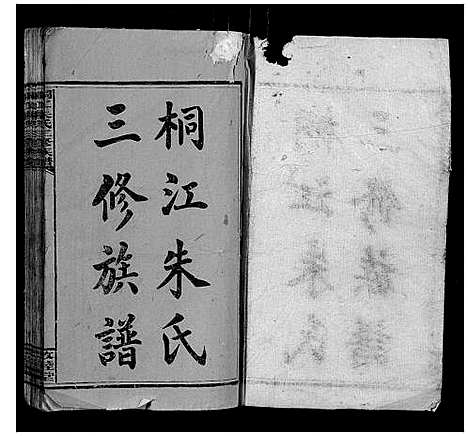 桐江朱氏
三修族譜